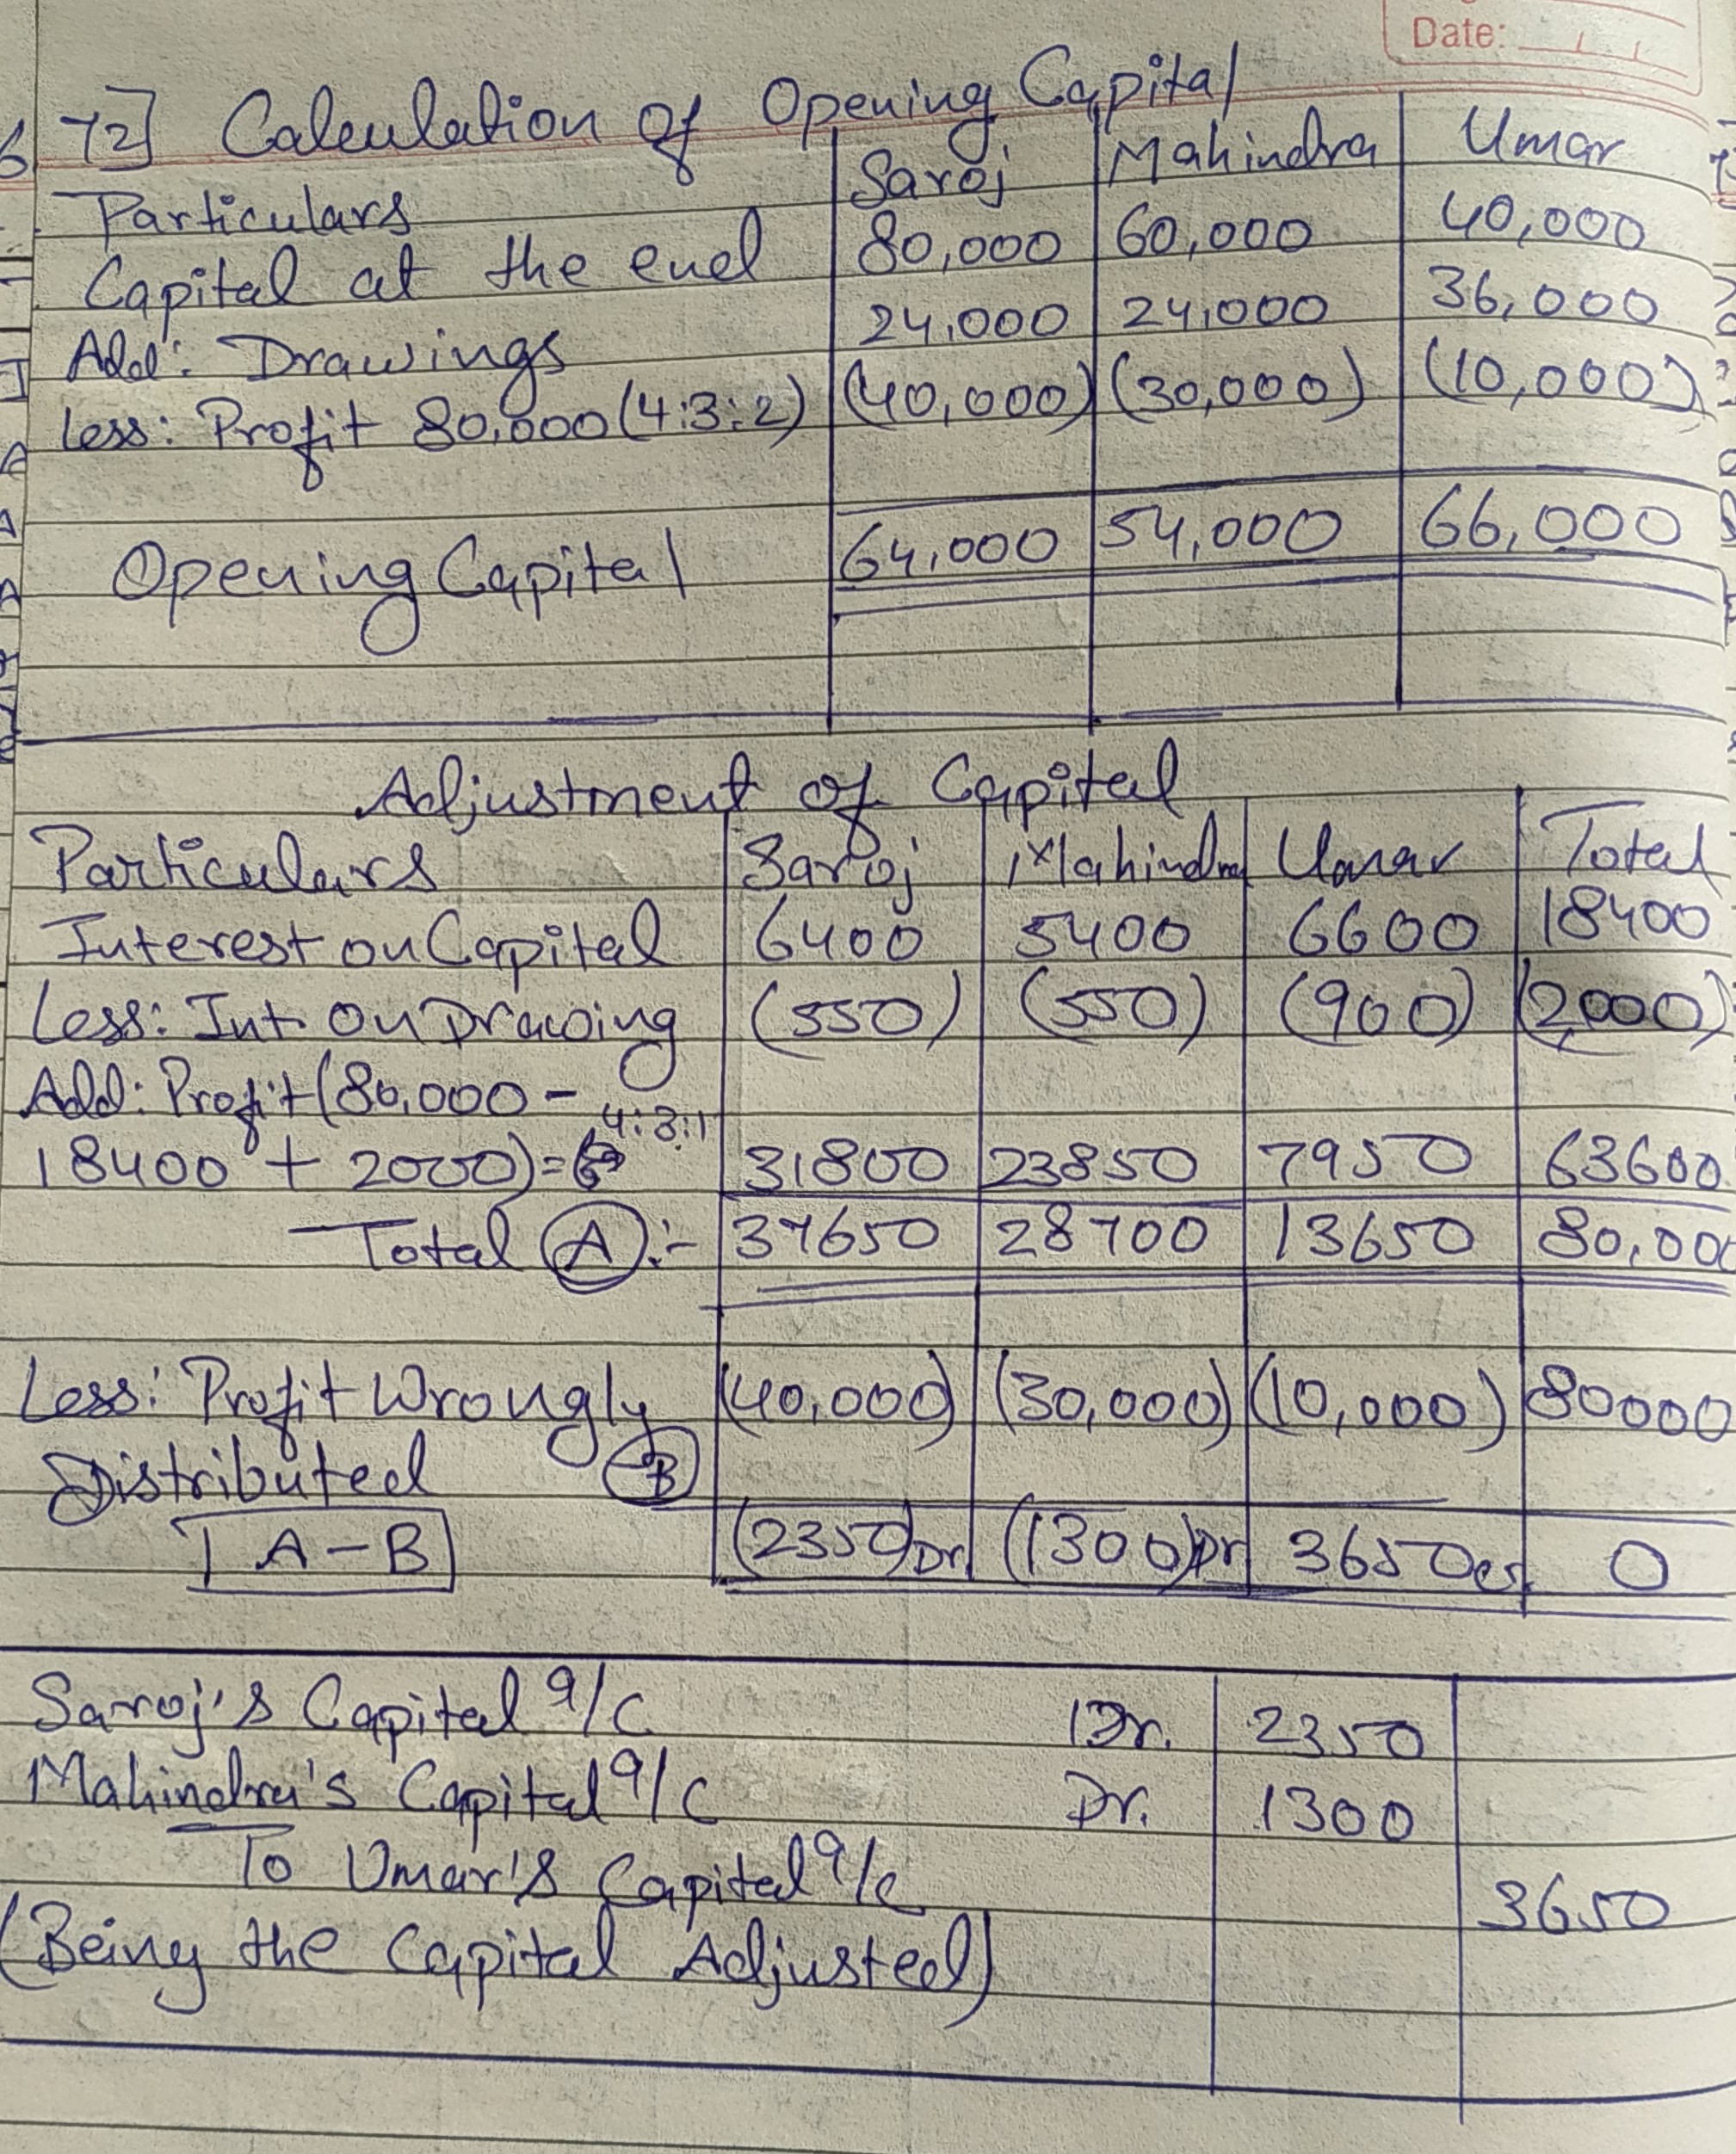 Date:
72] Calculation of Opening Capital
Particulars Saroj Mahindra Umar
Capital at the end 80,000 60,000 40,000
Add: Drawings 24,000 24,000 36,000
Less: Profit 80,000 (4:3:2) (40,000) (30,000) (10,000)
Opening Capital 64,000 54,000 66,000
Adjustment of Capital
Particulars Saroj Mahindra Umar Total
Interest on Capital 6400 5400 6600 18400
Less: Int on Drawing (550) (550) (900) (2,000)
Add: Profit (80,000 -
18400 + 2000) = 4:3:1 31800 23850 7950 63600
Total (A):- 37650 28700 13650 80,00
Less: Profit Wrongly (40,000) (30,000) (10,000) 80000
Distributed (B)
A-B (2350) Dr (1300) Dr 3650 cr 0
Saroj's Capital a/c Dr. 2350
Mahindra's Capital a/c Dr. 1300
To Umar's Capital a/c 3650
(Being the Capital Adjusted)